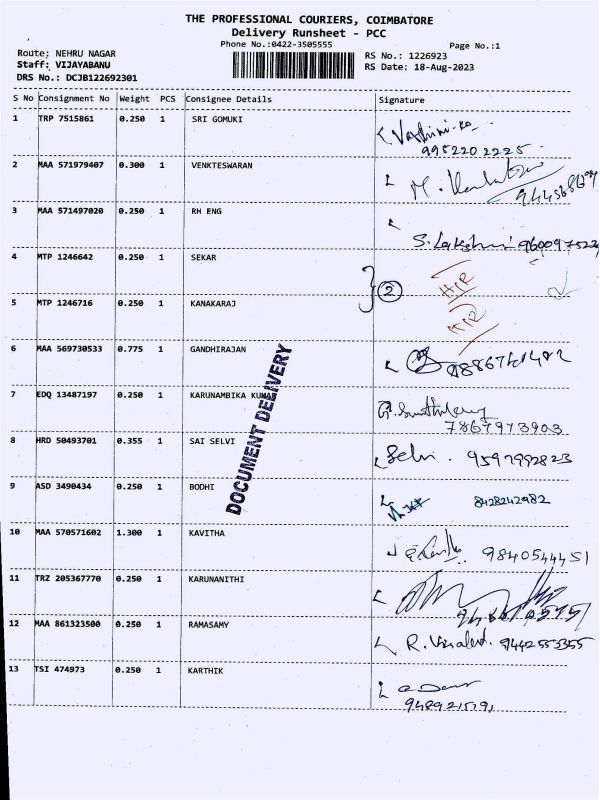 THE PROFESSIONAL COURIERS, COIMBATORE
Delivery Runsheet - PCC
Phone No.:0422-3505555
Page No.:1
Route: NEHRU NAGAR
Staff: VIJAYABANU
DRS No.: DCJB122692301
RS No.: 1226923
RS Date: 18-Aug-2023
S No Consignment No Weight PCS Consignee Details Signature
1 TRP 7515861 0.250 1 SRI GOMUKI
9952202225
2 MAA 571979407 0.300 1 VENKTESWARAN
M.
3 MAA 571497020 0.250 1 RH ENG
S. Lakshmi
4 MTP 1246642 0.250 1 SEKAR
2
5 MTP 1246716 0.250 1 KANAKARAJ
6 MAA 569730533 0.775 1 GANDHIRAJAN
7 EDQ 13487197 0.250 1 KARUNAMBIKA KUMAR
7867973903
8 HRD 50493701 0.355 1 SAI SELVI
Selvi . 9597992823
9 ASD 3490434 0.250 1 BODHI
8428242982
10 MAA 570571602 1.300 1 KAVITHA
9840544451
11 TRZ 205367770 0.250 1 KARUNANITHI
12 MAA 861323500 0.250 1 RAMASAMY
R. 9442553355
13 TSI 474973 0.250 1 KARTHIK
DOCUMENT DELIVERY